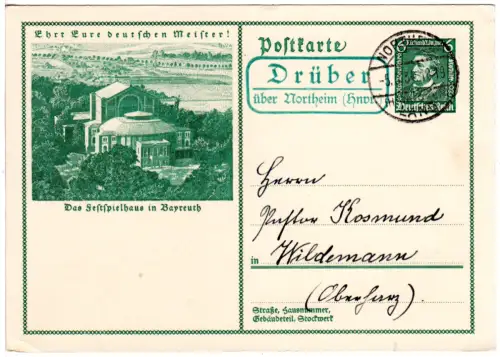 Ehrt Eure deutschen Meister!
Das Festspielhaus in Bayreuth
Postkarte
6 6
Deutsches Reich
Drüber
über Northeim (Hnv)
Herrn
Pastor Kosmund
in Wildemann
(Oberharz)
Straße, Hausnummer,
Gebäudeteil, Stockwerk